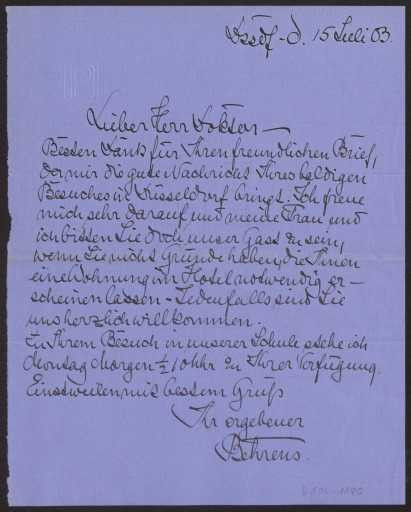 Dssdf-d. 15 Juli 03.
Lieber Herr Doktor –
Besten Dank für Ihren freundlichen Brief,
der mir die gute Nachricht Ihres baldigen
Besuches in Düsseldorf bringt. Ich freue
mich sehr darauf und meine Frau und
ich bitten Sie doch unser Gast zu sein,
wenn Sie nicht Gründe haben, die Ihnen
eine Wohnung im Hotel notwendig er-
scheinen lassen – Jedenfalls sind Sie
uns herzlich willkommen.
Zu Ihrem Besuch in unserer Schule stehe ich
Montag Morgen ½ 10 Uhr zu Ihrer Verfügung.
Einstweilen mit bestem Gruß
Ihr ergebener
Behrens.